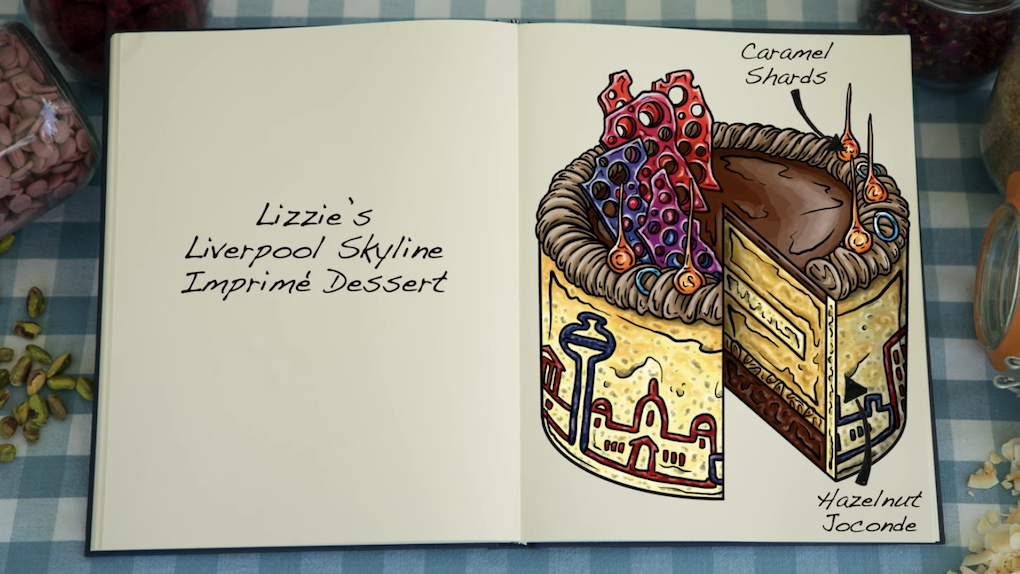 Lizzie's
Liverpool Skyline
Imprimé Dessert
Caramel
Shards
Hazelnut
Joconde